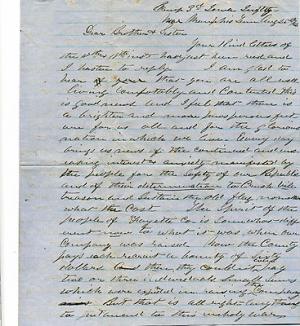 Camp 3rd Iowa Infty
Near Memphis Tenn Aug
Dear Brother & Sister
Your Kind letters of
the inst had just been recd and
I hasten to reply. I am glad to
hear that you are all well
living Comfortably and Contented this
is good news and I feel that there is
a brighten and more prosperous
for us all and for the glorious
nation in which we live. Every day
brings us news of the continued and
interest and anxiety manifested by
the people for the Safety of our Republic
and of their determination to Crush vile
treason and Sustain the old flag no
what the Cost. The Spirit of the
people of Fayette Co is somewhat diff
erent now to what it was when our
Company was raised. Now the County
pays each recruit a bounty of sixty
dollars and then they couldn't pay
two or three individuals enough
which were expended in raising the
But that is all right anything
to put men in to this unholy war.